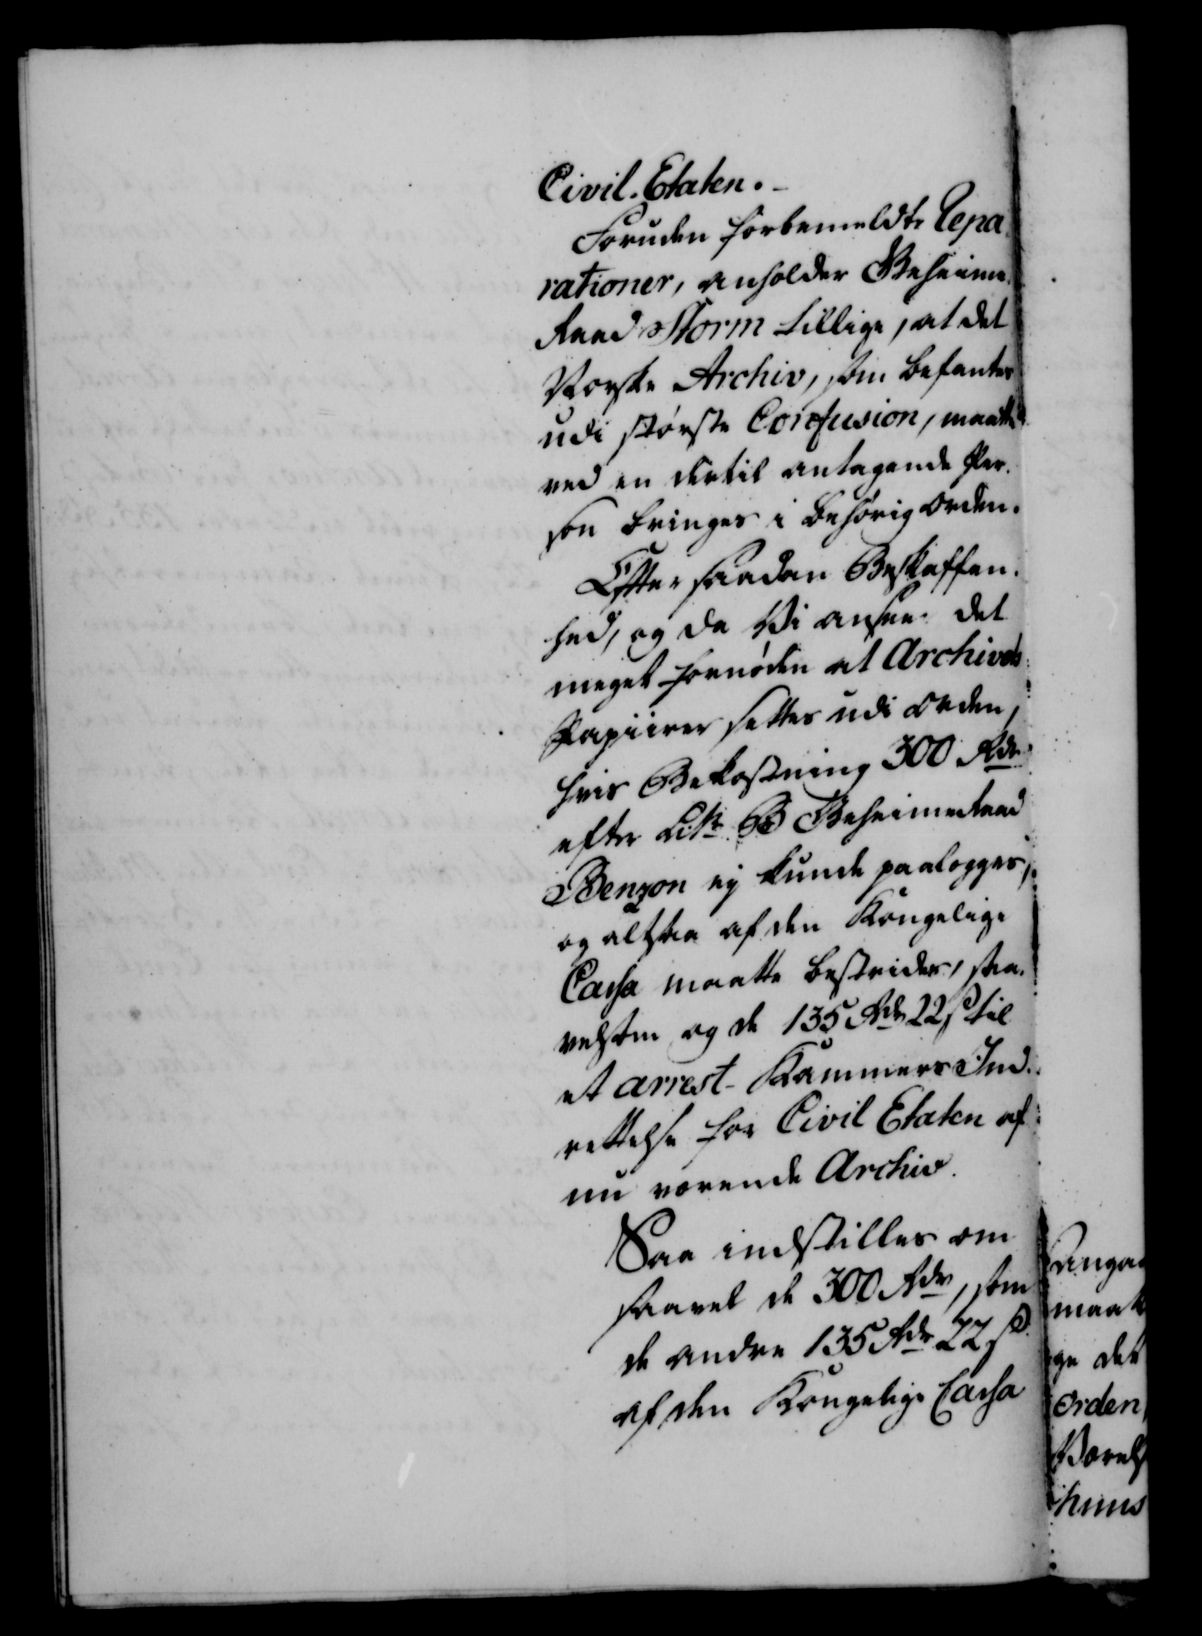 Civil-Etaten.-
Foruden forbemeldte Repa-
rationer, anholder Geheime-
Raad Storm tillige, at det
Norske Archiv, som befantes
udi største Confusion, maatte
ved en dertil antagende Per-
son bringes i behørig orden.
Efter saadan Beskaffen-
hed, og da Vi ansee det
meget fornøden at Archivets
Papiirer settes udi orden,
hvis Bekostning 300 Rdr
efter Litr. B Geheimeraad
Benzon ej kunde paalegges,
og altsaa af den Kongelige
Cassa maatte bestrides, saa-
velsom og de 135 Rdr 22 s til
et arrest-Kammers Ind-
rettelse for Civil Etaten af
nu værende Archiv.
Saa indstilles om
saavel de 300 Rdr, som
de andre 135 Rdr 22 s
af den Kongelige Cassa
angaa
maat
ge det
orden
Værels
huus